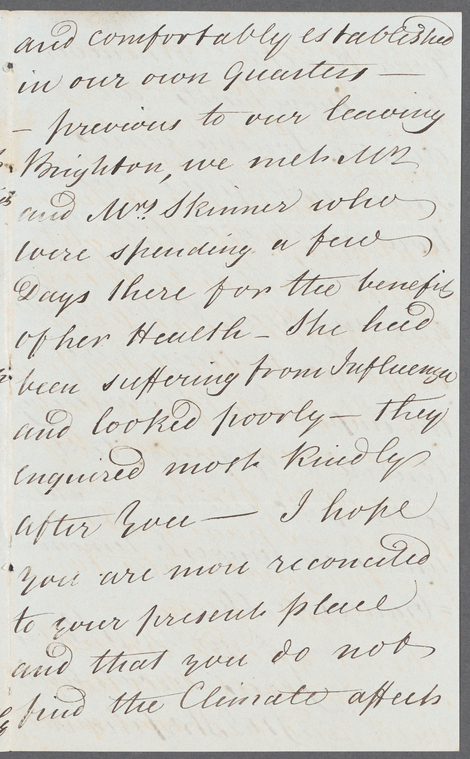 and comfortably established
in our own Quarters —
— previous to our leaving
Brighton, we met Mr
and Mrs Skinner who
were spending a few
Days there for the benefit
of her Health — She had
been suffering from Influenza
and looked poorly — they
enquired most kindly
after you — I hope
you are more reconciled
to your present place
and that you do not
find the Climate affects